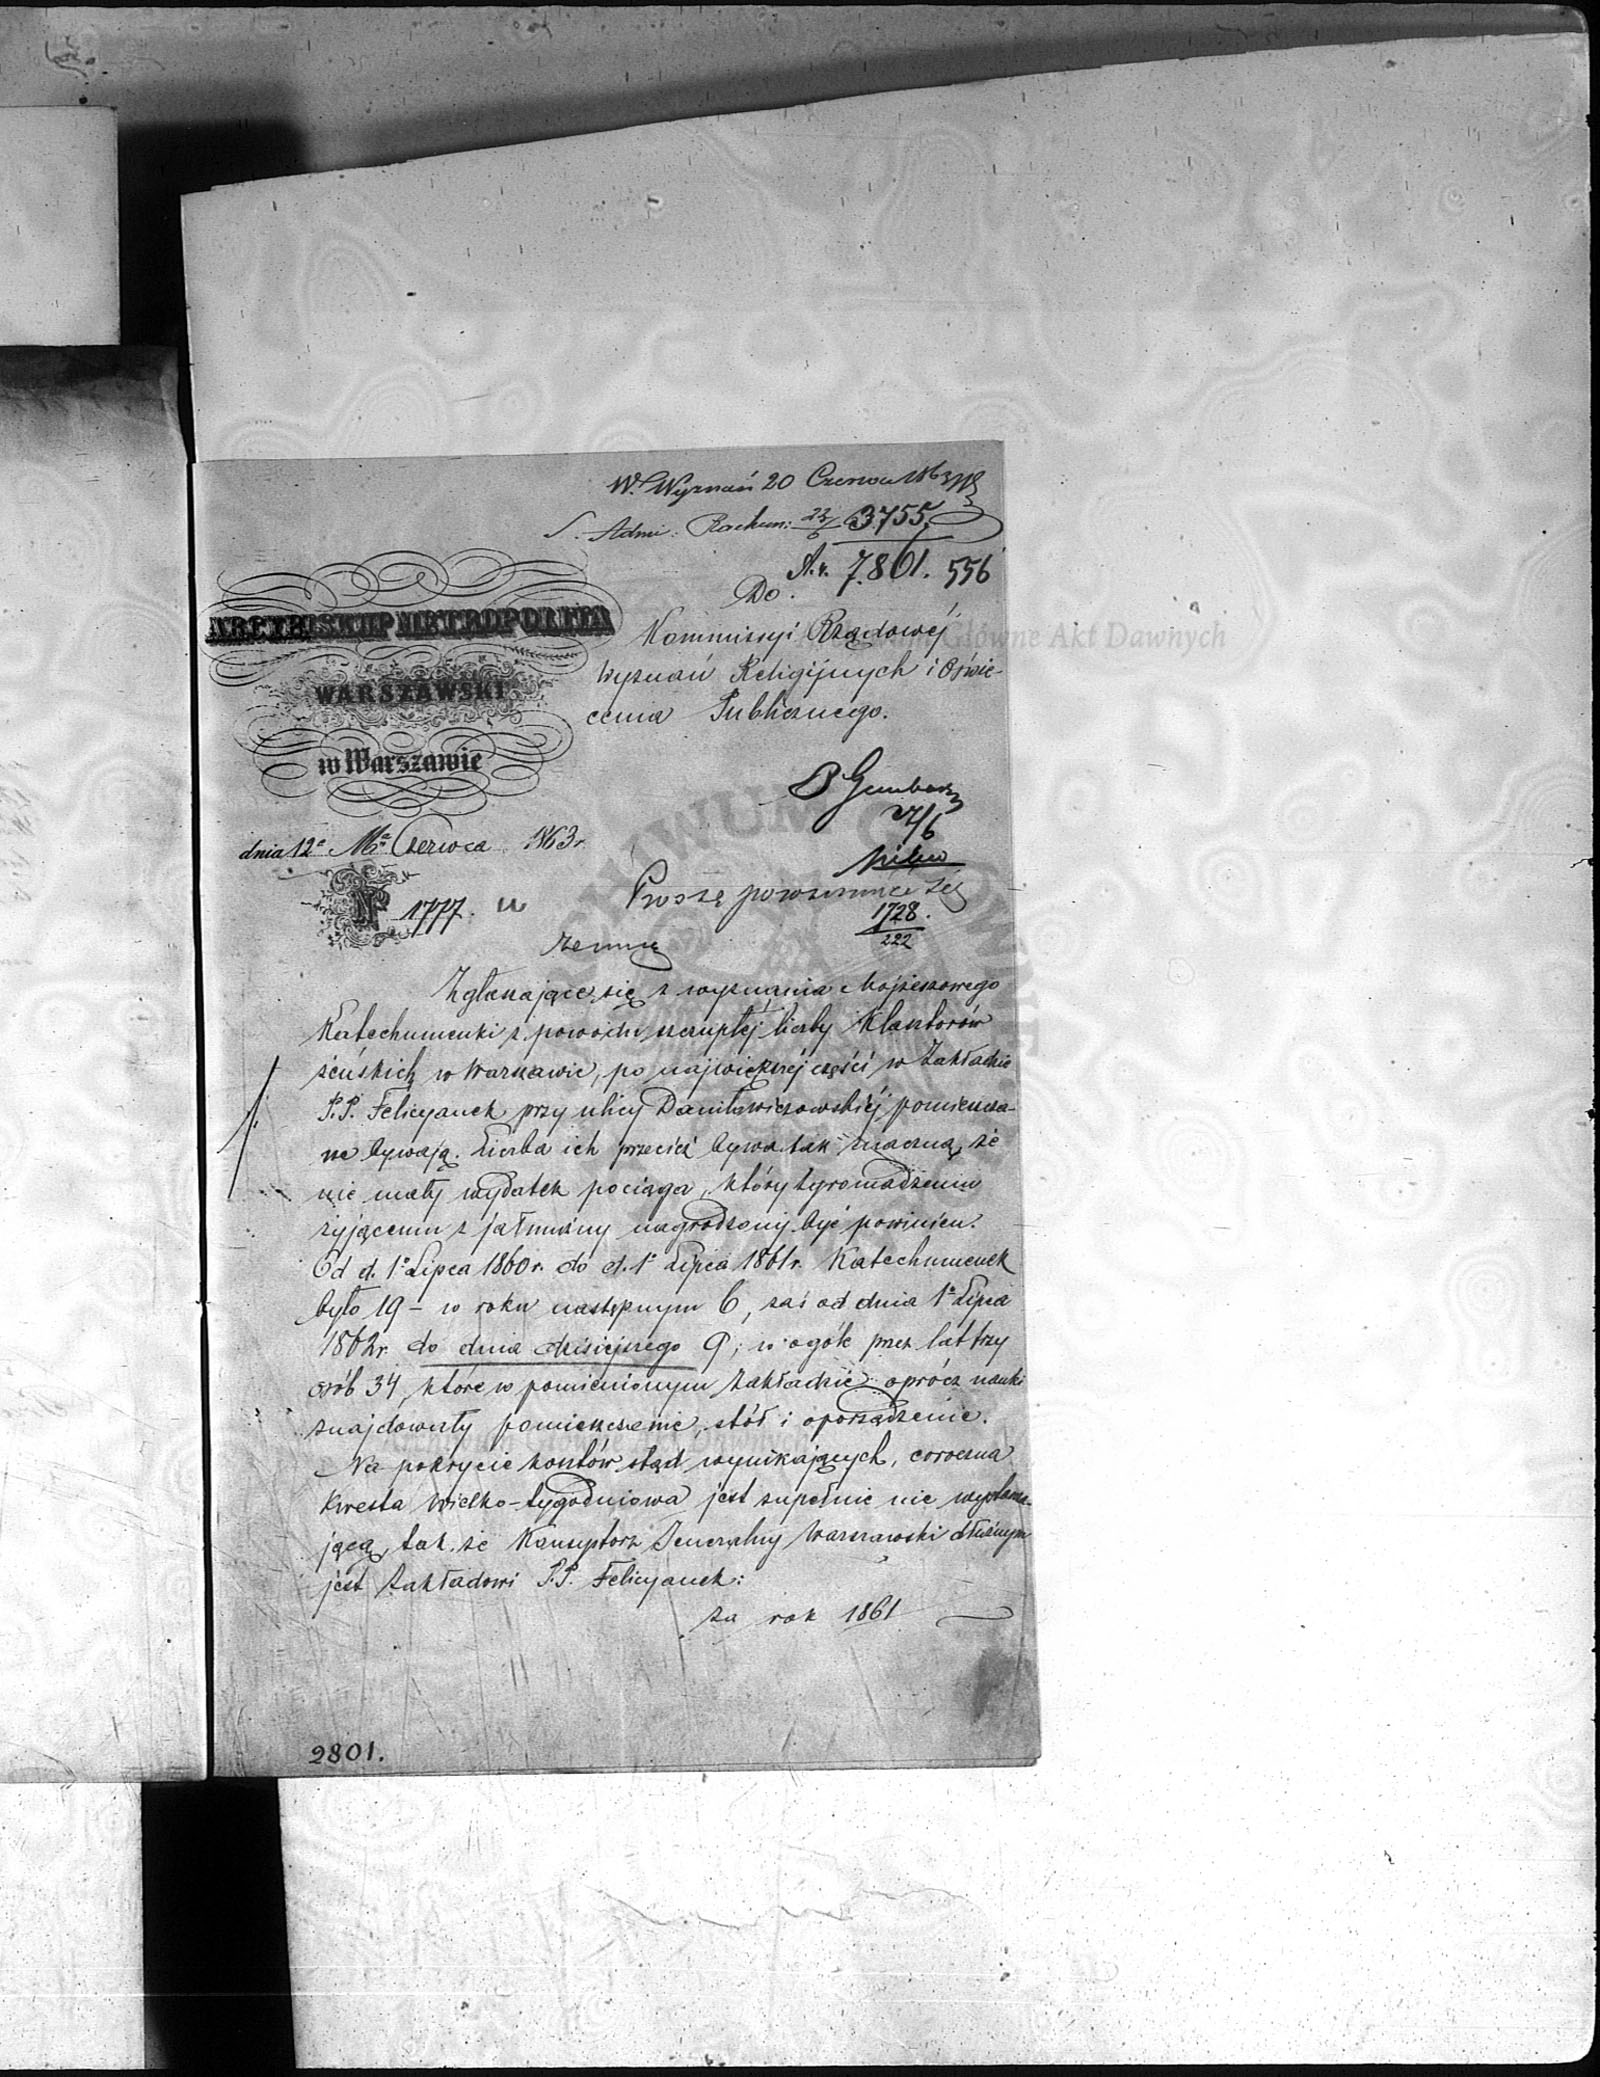 W. Wyznań 20 Czerwca 1863
S. Admi: Rachun: 22/6 3755
A.v. 7.801. 556
Do
Kommissyi Rządowéj
Wyznań Religijnych i Oświe-
cenia Publicznego.
ARCYBISKUP METROPOLITA
WARSZAWSKI
w Warszawie
dnia 12º Mca Czerwca 1863 r.
Nº 1777.
27/6
Proszę porozumieć się
1728.
222
zemną
Zgłaszające się z wyznania Mojżeszowego
Katechumenki z powodu szczupłéj liczby Klasztorów
żeńskich w Warszawie, po największéj części w Zakładzie
P.P. Felicyanek przy ulicy Daniłowiczowskiéj pomieszcza-
ne bywają. Liczba ich przecież bywa tak znaczną, że
nie mały wydatek pociąga, który zgromadzeniu
żyjącemu z jałmużny nagrodzony być powinien.
Od d. 1º Lipca 1860 r. do d. 1º Lipca 1861 r. Katechumenek
było 19 – w roku następnym 6, zaś od dnia 1º Lipca
1862 r. do dnia dzisiejszego 9, w ogóle przez lat trzy
osób 34, które w pomienionym Zakładzie oprócz nauki
znajdowały pomieszczenie, stół i oporządzenie.
Na pokrycie kosztów ztąd wynikających, coroczna
Kwesta Wielko-tygodniowa jest zupełnie nie wystarcza-
jącą, tak że Konsystorz Jeneralny Warszawski dłużnym
jest Zakładowi P.P. Felicyanek:
za rok 1861
2801.
Główne Akt Dawnych